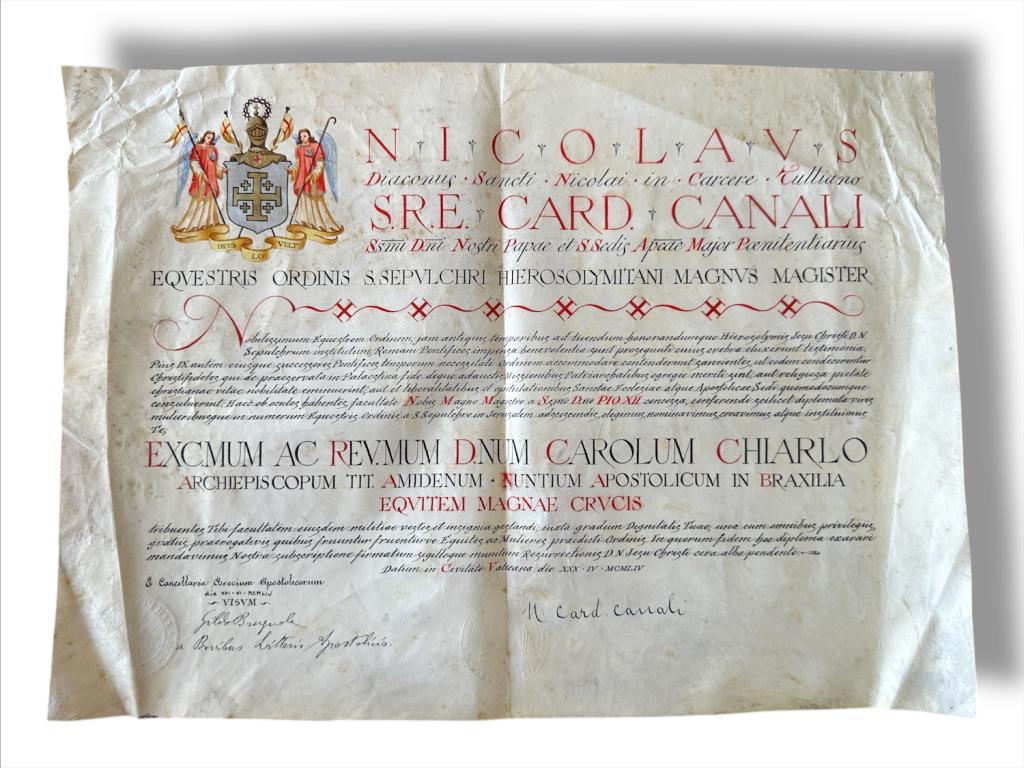 DEUS LO VULT
NICOLAVS
Diaconus · Sancti · Nicolai · in · Carcere · Tulliano
S.R.E. CARD. CANALI
Ssmi D.ni Nostri Papae et S. Sedis Apcae Major Pœnitentiarius
EQVESTRIS ORDINIS S. SEPVLCHRI HIEROSOLYMITANI MAGNVS MAGISTER
Nobilissimum Equestrem Ordinem, jam antiquis temporibus ad tuendum honorandumque Hierosolymis Jesu Christi D.N.
Sepulchrum institutum, Romani Pontifices impensa benevolentia sunt prosequuti cuius crebra eluxerunt testimonia.
Pius IX autem eiusque successores Pontifices temporum necessitati Ordinem accomodare contenderunt sancientes, ut eodem condecorentur
Christifideles qui de praeservata in Palaestina fide atque adauctis Missionibus Patriarchalibus egregie meriti sint, aut religiosa pietate
christianae vitae nobilitate eminuerint, aut et liberalitatibus et opitulationibus Sanctae Ecclesiae atque Apostolicae Sedi quomodocumque
consuluerint. Haec ob oculos habentes, facultate Nobis Magno Magistro a Ssmo D.no PIO XII concessa, conferendi scilicet diplomata viris
mulieribusque in numerum Equestris Ordinis a S. Sepulcro in Jerusalem adsciscendis, elegimus, nominavimus, creavimus atque instituimus
Te,
EXCMUM AC REV.MUM D.NUM CAROLUM CHIARLO
ARCHIEPISCOPUM TIT. AMIDENUM · NUNTIUM APOSTOLICUM IN BRAXILIA
EQVITEM MAGNAE CRVCIS
tribuentes Tibi facultatem eiusdem militiae vestes et insignia gestandi iuxta gradum Dignitatis Tuae, una cum omnibus privilegiis,
gratiis, praerogativis quibus fruuntur fruenturve Equites ac Mulieres praedicti Ordinis. In quorum fidem hoc diploma exarari
mandavimus Nostra subscriptione firmatum sigilloque munitum Resurrectionis D.N. Jesu Christi cera alba pendente.
Datum in Civitate Vaticana die XXX · IV · MCMLIV
E Cancellaria Brevium Apostolicorum
die XXI · VI · MCMLIV
VISVM
N. Card. Canali
Gildo Brugnola
a Brevibus Litteris Apostolicis.